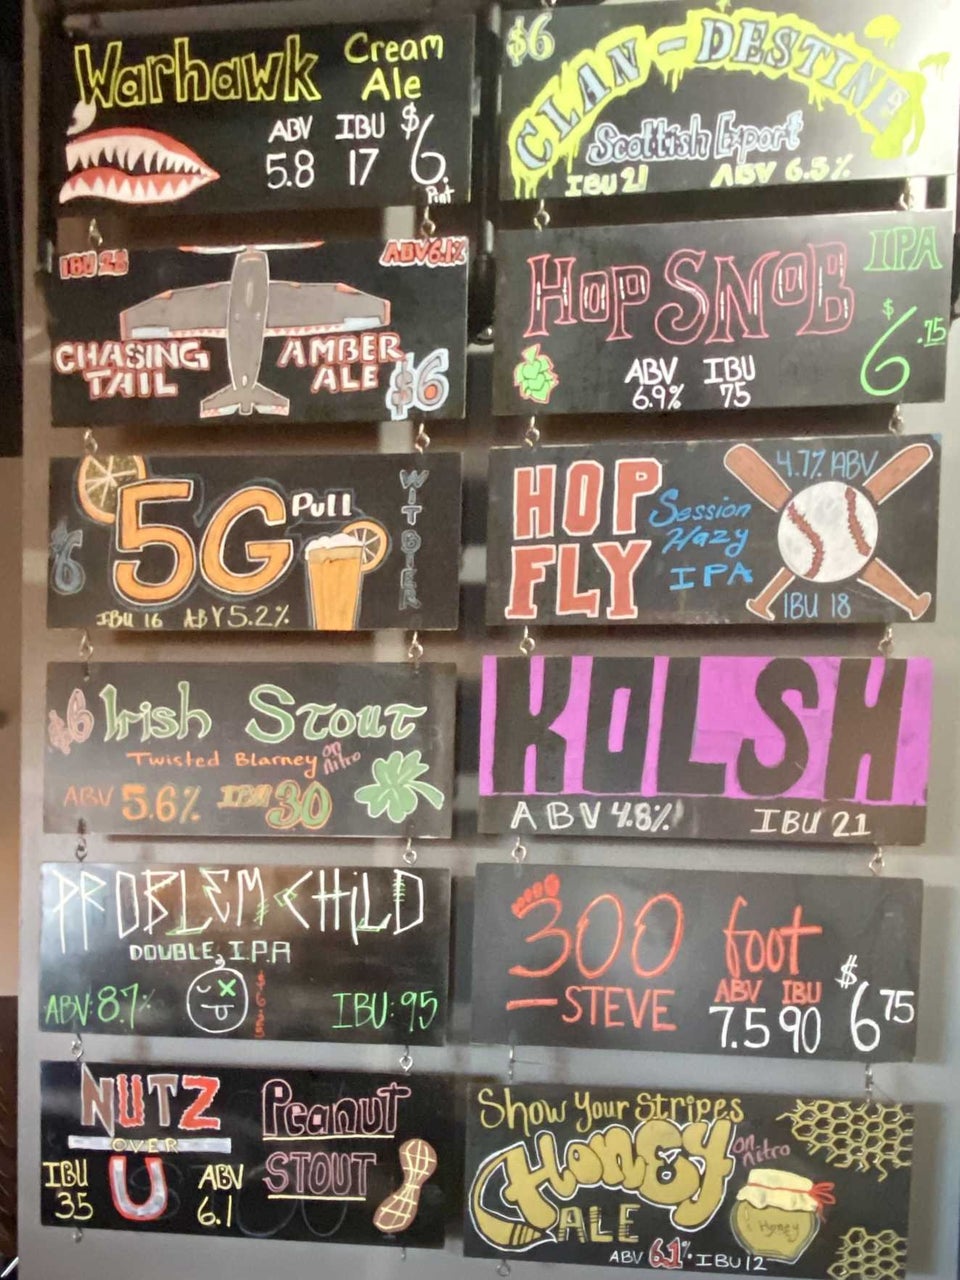 Warhawk Cream
Ale
ABV IBU $
5.8 17 6.
Pint
IBU 28 ABV 6.1%
CHASING AMBER
TAIL ALE $6
$6 5G Pull WITBIER
IBU 16 ABV 5.2%
$6 Irish Stout
Twisted Blarney on nitro
ABV 5.6% IBU 30
PROBLEM CHILD
DOUBLE I.P.A
ABV: 8.7% IBU: 95
NUTZ Peanut
OVER STOUT
U
IBU ABV
35 6.1
$6 CLAN-DESTINE
Scottish Export
IBU 21 ABV 6.5%
HOP SNOB IPA
$6.75
ABV IBU
6.9% 75
HOP Session 4.7% ABV
FLY Hazy
IPA IBU 18
KOLSH
ABV 4.8% IBU 21
300 foot
-STEVE ABV IBU
7.5 90 $675
Show Your Stripes
Honey on nitro
ALE Honey
ABV 6.1% IBU 12